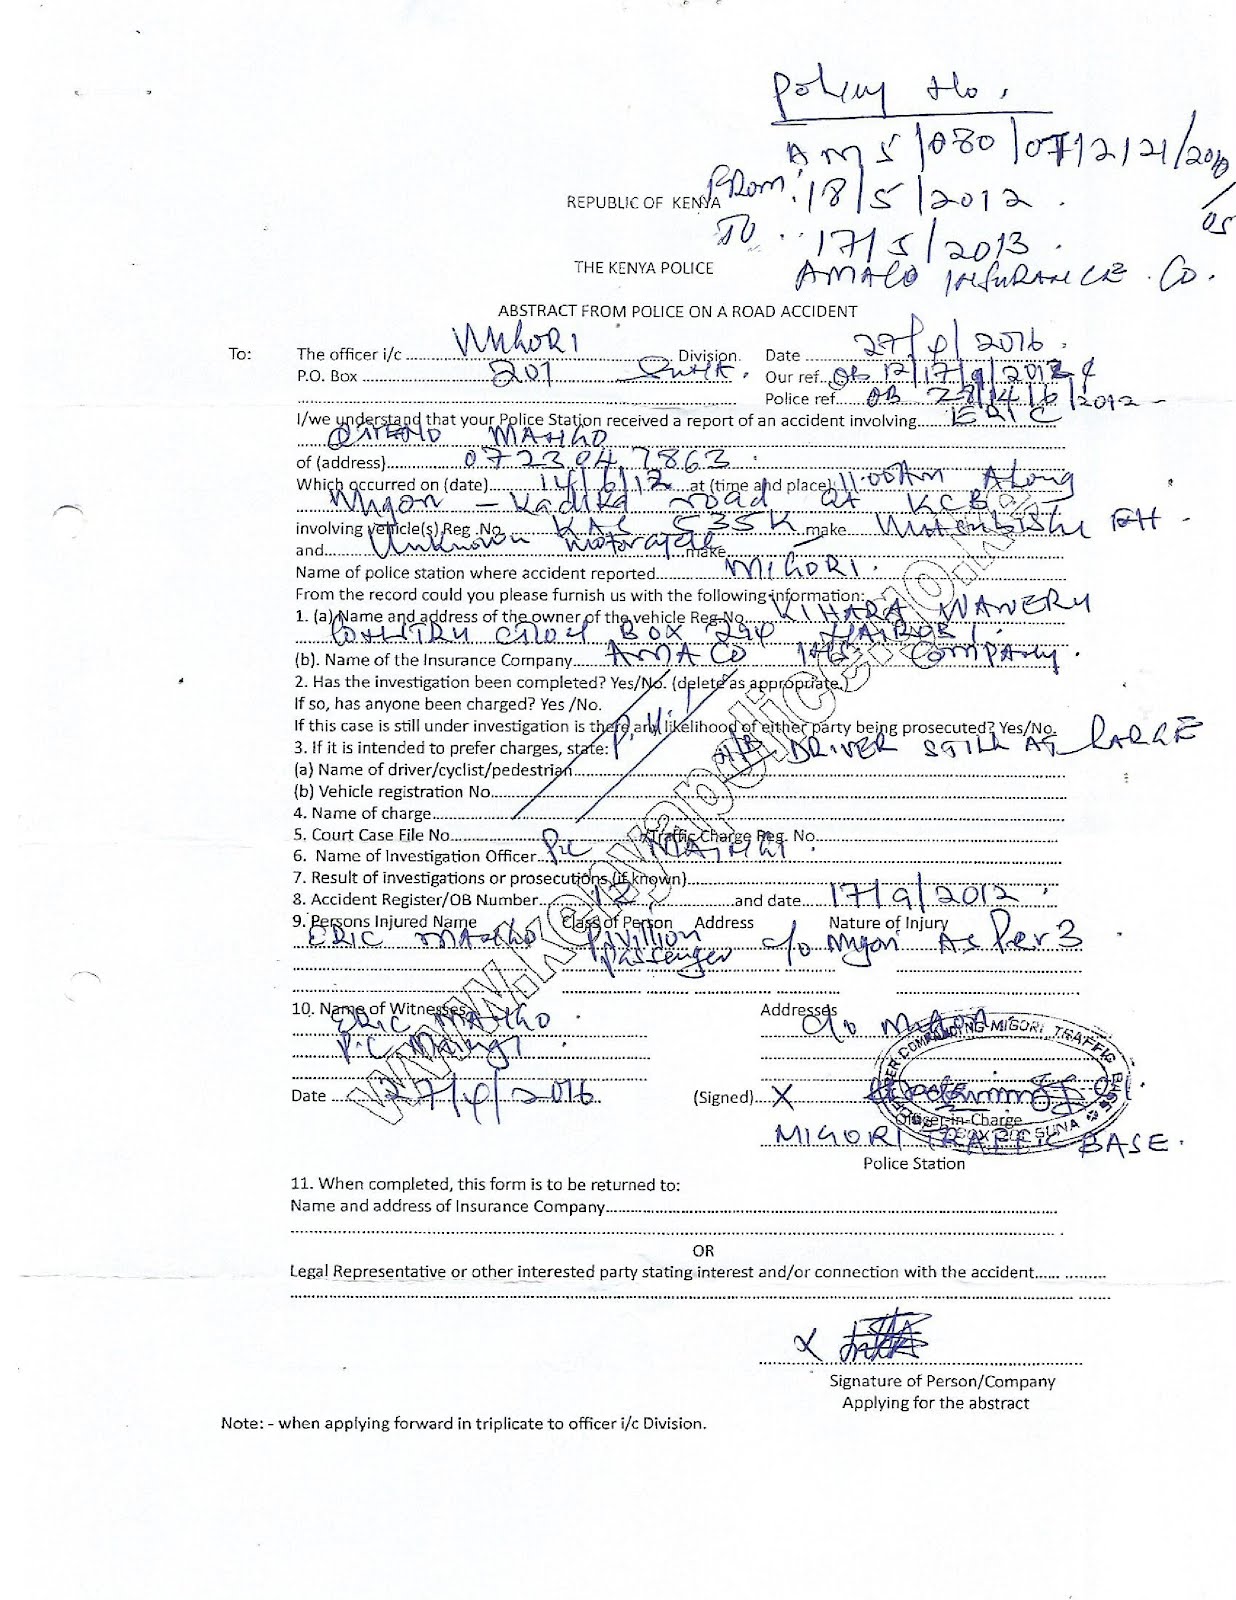 Policy No.
AM5/080/0712121/2010
/05
From: 18/5/2012.
REPUBLIC OF KENYA
To.. 17/5/2013.
THE KENYA POLICE
AMACO INSURANCE Co.
ABSTRACT FROM POLICE ON A ROAD ACCIDENT
To: The officer i/c MIGORI Division. Date 27/4/2016.
P.O. Box 201 SUNA. Our ref. OB 12/17/9/2012 &
Police ref. OB 28/14/6/2012 -
I/we understand that your Police Station received a report of an accident involving ERIC
OTIENO
of (address) 0723047863.
Which occurred on (date) 14/6/12 at (time and place) 11.00AM Along
Migori - road at KCB
involving vehicle(s) Reg .No. 535K make FH -
and Unknown motorcycle make
Name of police station where accident reported MIGORI.
From the record could you please furnish us with the following information:
1. (a) Name and address of the owner of the vehicle Reg No. KIHARA
BOX 294 NAIROBI.
(b). Name of the Insurance Company AMACO INS COMPANY.
2. Has the investigation been completed? Yes/No. (delete as appropriate.)
If so, has anyone been charged? Yes /No.
P.U.I
If this case is still under investigation is there any likelihood of either party being prosecuted? Yes/No.
3. If it is intended to prefer charges, state: DRIVER STILL AT LARGE
(a) Name of driver/cyclist/pedestrian
(b) Vehicle registration No.
4. Name of charge
5. Court Case File No. Traffic Charge Reg. No.
6. Name of Investigation Officer P.C
7. Result of investigations or prosecutions (if known)
8. Accident Register/OB Number 12 and date 17/9/2012.
9. Persons Injured Name Class of Person Address Nature of Injury
ERIC Pavillion c/o Migori As Per 3
passenger
10. Name of Witnesses Addresses
ERIC c/o Migori
P.C
Date 27/4/2016. (Signed) X
Officer-in-Charge
MIGORI TRAFFIC BASE.
Police Station
MIGORI TRAFFIC BASE
SUNA
11. When completed, this form is to be returned to:
Name and address of Insurance Company
OR
Legal Representative or other interested party stating interest and/or connection with the accident
X
Signature of Person/Company
Applying for the abstract
Note: - when applying forward in triplicate to officer i/c Division.
www.kenyapolice.go.ke